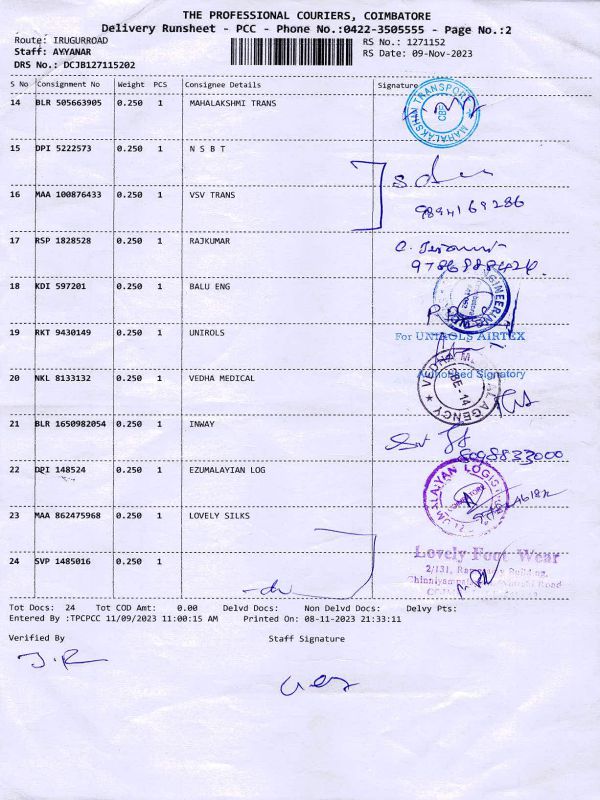 THE PROFESSIONAL COURIERS, COIMBATORE
Delivery Runsheet - PCC - Phone No.:0422-3505555 - Page No.:2
Route: IRUGURROAD
RS No.: 1271152
Staff: AYYANAR
RS Date: 09-Nov-2023
DRS No.: DCJB127115202
S No Consignment No Weight PCS Consignee Details Signature
14 BLR 505663905 0.250 1 MAHALAKSHMI TRANS
MAHALAKSHMI TRANSPORT
CBE
15 DPI 5222573 0.250 1 N S B T
16 MAA 100876433 0.250 1 VSV TRANS
9894169286
17 RSP 1828528 0.250 1 RAJKUMAR
18 KDI 597201 0.250 1 BALU ENG
19 RKT 9430149 0.250 1 UNIROLS
For UNIROLS AIRTEX
Authorised Signatory
20 NKL 8133132 0.250 1 VEDHA MEDICAL
VEDHA AGENCY
CBE - 14
21 BLR 1650982054 0.250 1 INWAY
8098833000
22 DPI 148524 0.250 1 EZUMALAYIAN LOG
23 MAA 862475968 0.250 1 LOVELY SILKS
24 SVP 1485016 0.250 1
Lovely Foot Wear
2/131, Building,
Road
Tot Docs: 24 Tot COD Amt: 0.00 Delvd Docs: Non Delvd Docs: Delvy Pts:
Entered By :TPCPCC 11/09/2023 11:00:15 AM Printed On: 08-11-2023 21:33:11
Verified By Staff Signature
J.R